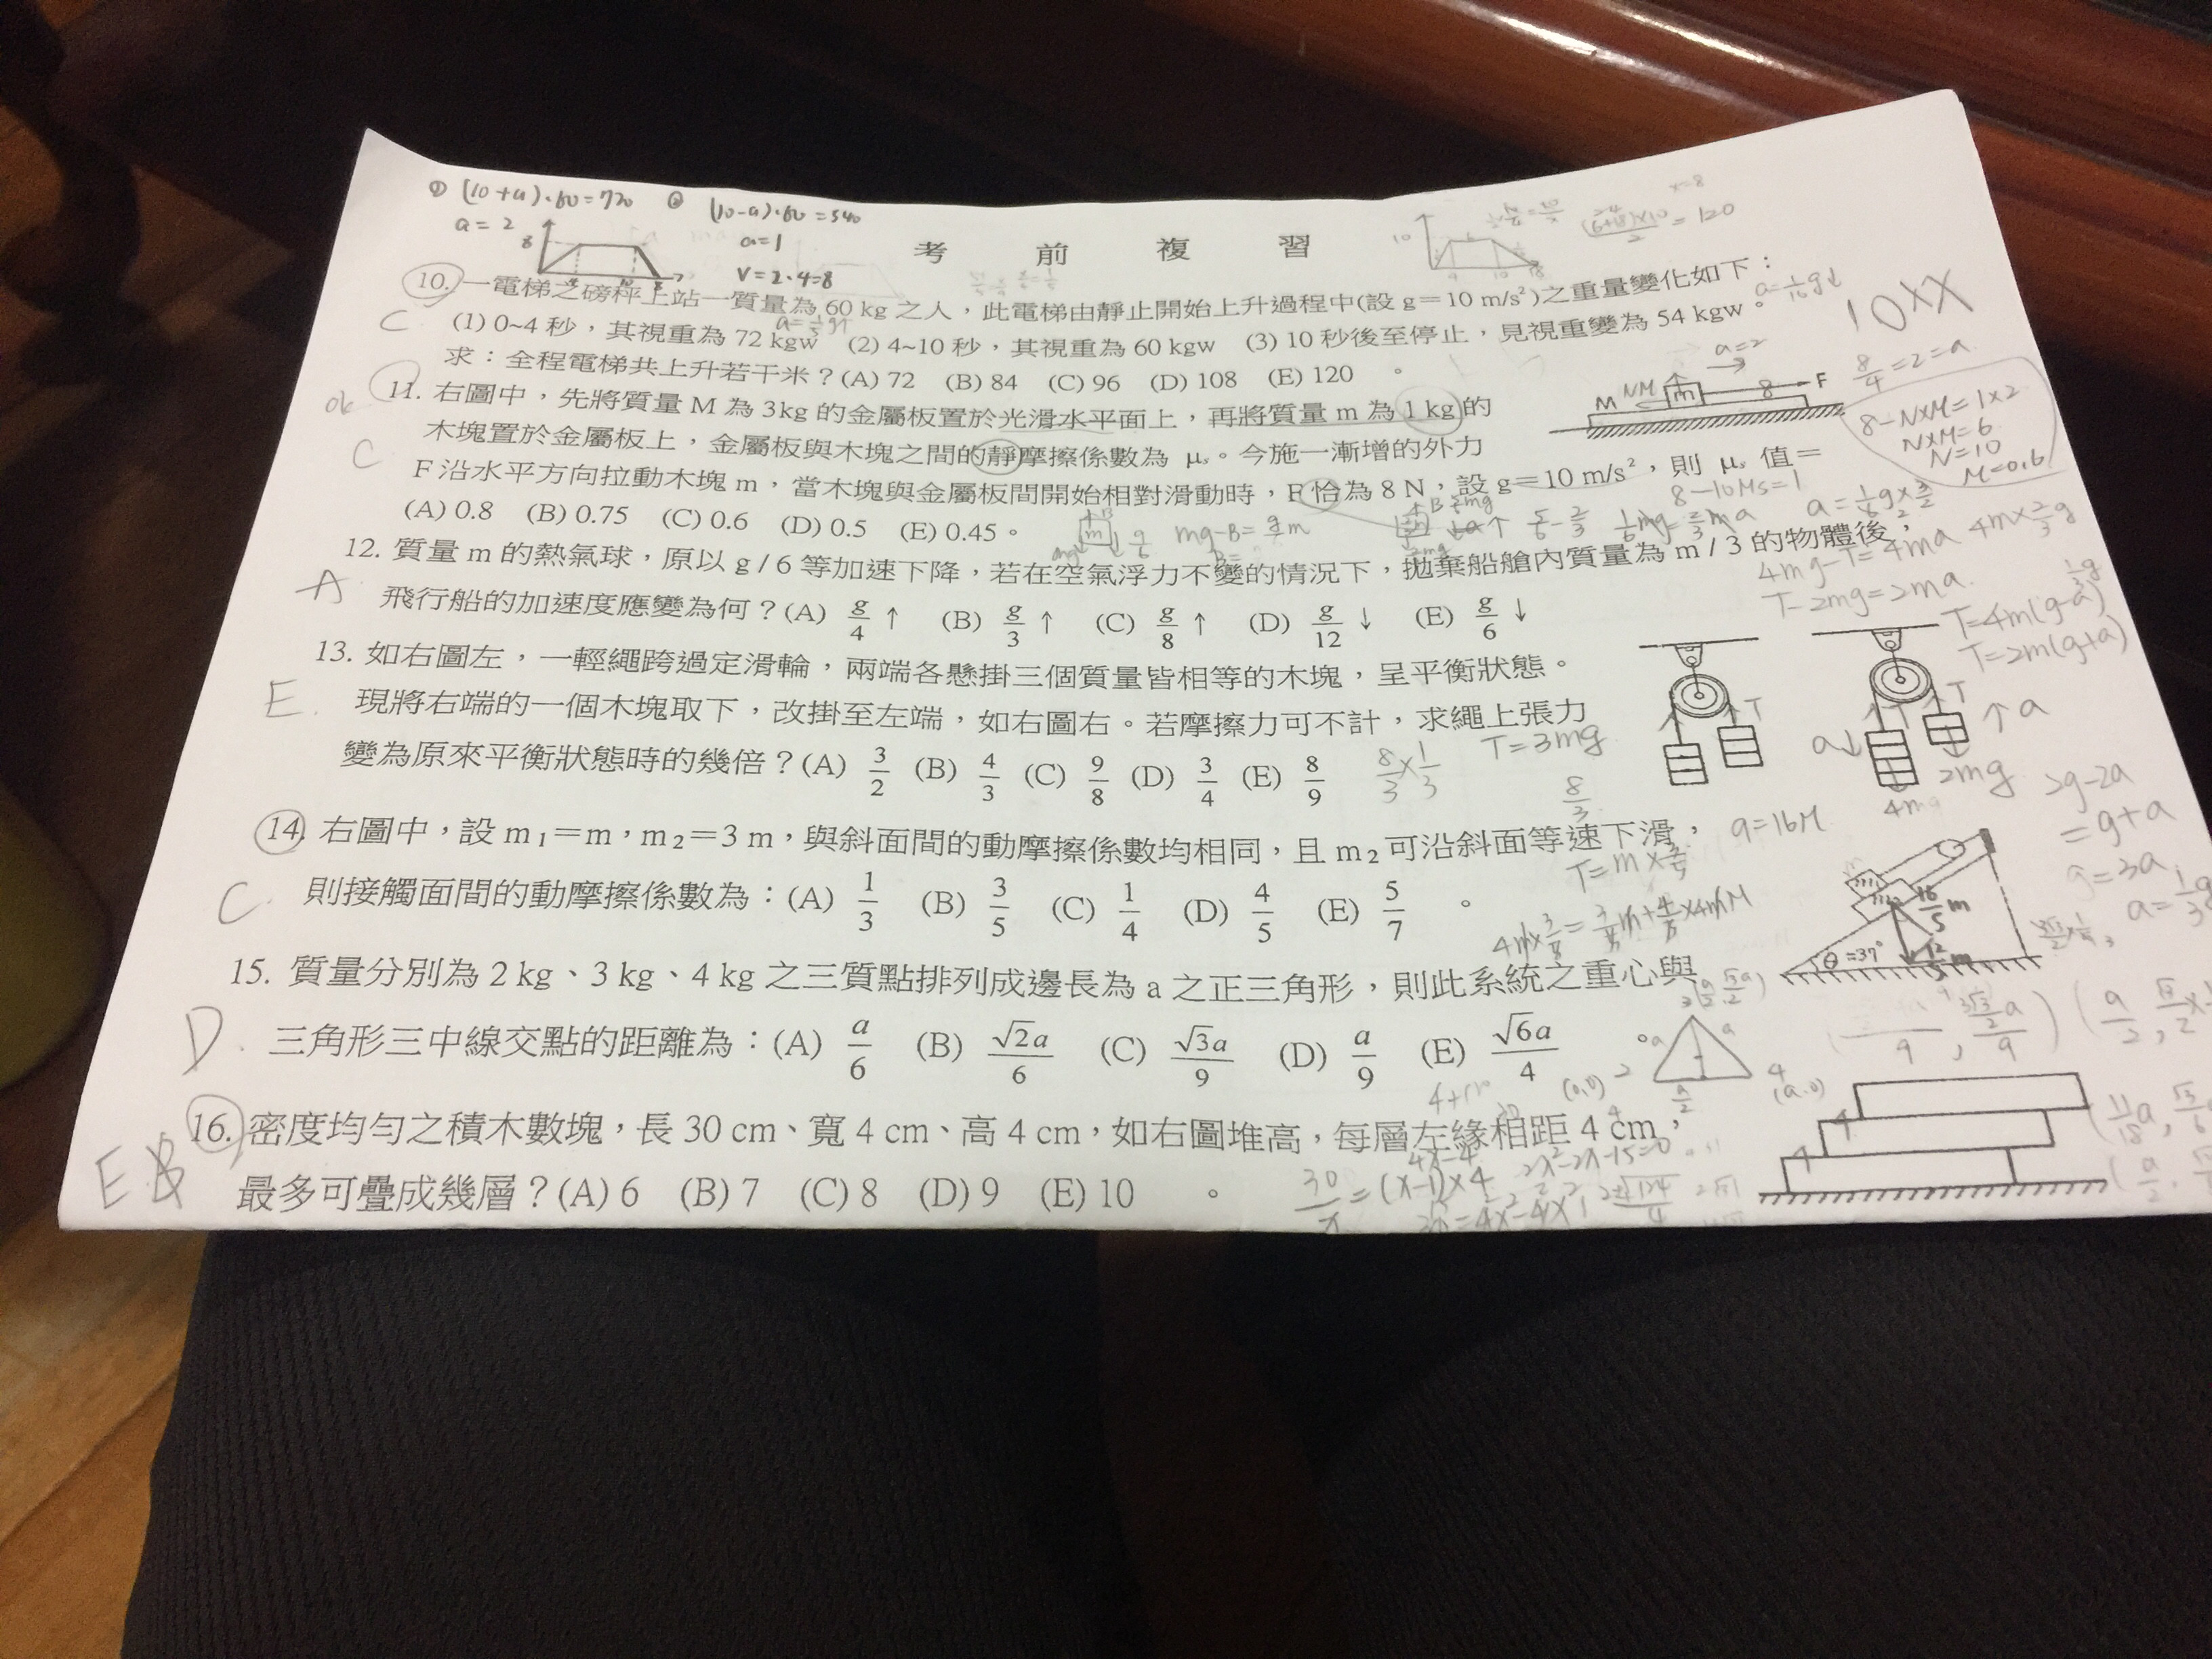 ① (10+a)·60=720 ② (10-a)·60=540
a=2 8
a=1
V=2·4=8
10
x=8
=120
考前複習
10. 一電梯之磅秤上站一質量為 60 kg 之人，此電梯由靜止開始上升過程中(設 g＝10 m/s²)之重量變化如下：
C (1) 0~4 秒，其視重為 72 kgw (2) 4~10 秒，其視重為 60 kgw (3) 10 秒後至停止，見視重變為 54 kgw。
求：全程電梯共上升若干米？(A) 72 (B) 84 (C) 96 (D) 108 (E) 120 。
10XX
8/4=2=a
a=2
M m 8 F
8-N×M=1×2
N×M=6
N=10
M=0.6
ok 11. 右圖中，先將質量 M 為 3kg 的金屬板置於光滑水平面上，再將質量 m 為 1 kg 的
C 木塊置於金屬板上，金屬板與木塊之間的靜摩擦係數為 μs。今施一漸增的外力
F 沿水平方向拉動木塊 m，當木塊與金屬板間開始相對滑動時，F 恰為 8 N，設 g＝10 m/s²，則 μs 值＝
(A) 0.8 (B) 0.75 (C) 0.6 (D) 0.5 (E) 0.45。
12. 質量 m 的熱氣球，原以 g / 6 等加速下降，若在空氣浮力不變的情況下，拋棄船艙內質量為 m / 3 的物體後，
A 飛行船的加速度應變為何？(A) g/4 ↑ (B) g/3 ↑ (C) g/8 ↑ (D) g/12 ↓ (E) g/6 ↓
4mg-T=4ma
T-2mg=2ma
T=4m(g-a)
T=2m(g+a)
13. 如右圖左，一輕繩跨過定滑輪，兩端各懸掛三個質量皆相等的木塊，呈平衡狀態。
E. 現將右端的一個木塊取下，改掛至左端，如右圖右。若摩擦力可不計，求繩上張力
變為原來平衡狀態時的幾倍？(A) 3/2 (B) 4/3 (C) 9/8 (D) 3/4 (E) 8/9
8/3×1/3
T=3mg
T
T
a↓
↑a
2mg
2g-2a
=g+a
g=3a
14. 右圖中，設 m₁＝m，m₂＝3 m，與斜面間的動摩擦係數均相同，且 m₂ 可沿斜面等速下滑，
C. 則接觸面間的動摩擦係數為：(A) 1/3 (B) 3/5 (C) 1/4 (D) 4/5 (E) 5/7 。
θ=37°
16/5 m
12/5 m
15. 質量分別為 2 kg、3 kg、4 kg 之三質點排列成邊長為 a 之正三角形，則此系統之重心與
D. 三角形三中線交點的距離為：(A) a/6 (B) √2a/6 (C) √3a/9 (D) a/9 (E) √6a/4 。
(0,0) 2
4 (a,0)
16. 密度均勻之積木數塊，長 30 cm、寬 4 cm、高 4 cm，如右圖堆高，每層左緣相距 4 cm，
E 最多可疊成幾層？(A) 6 (B) 7 (C) 8 (D) 9 (E) 10 。
4
4